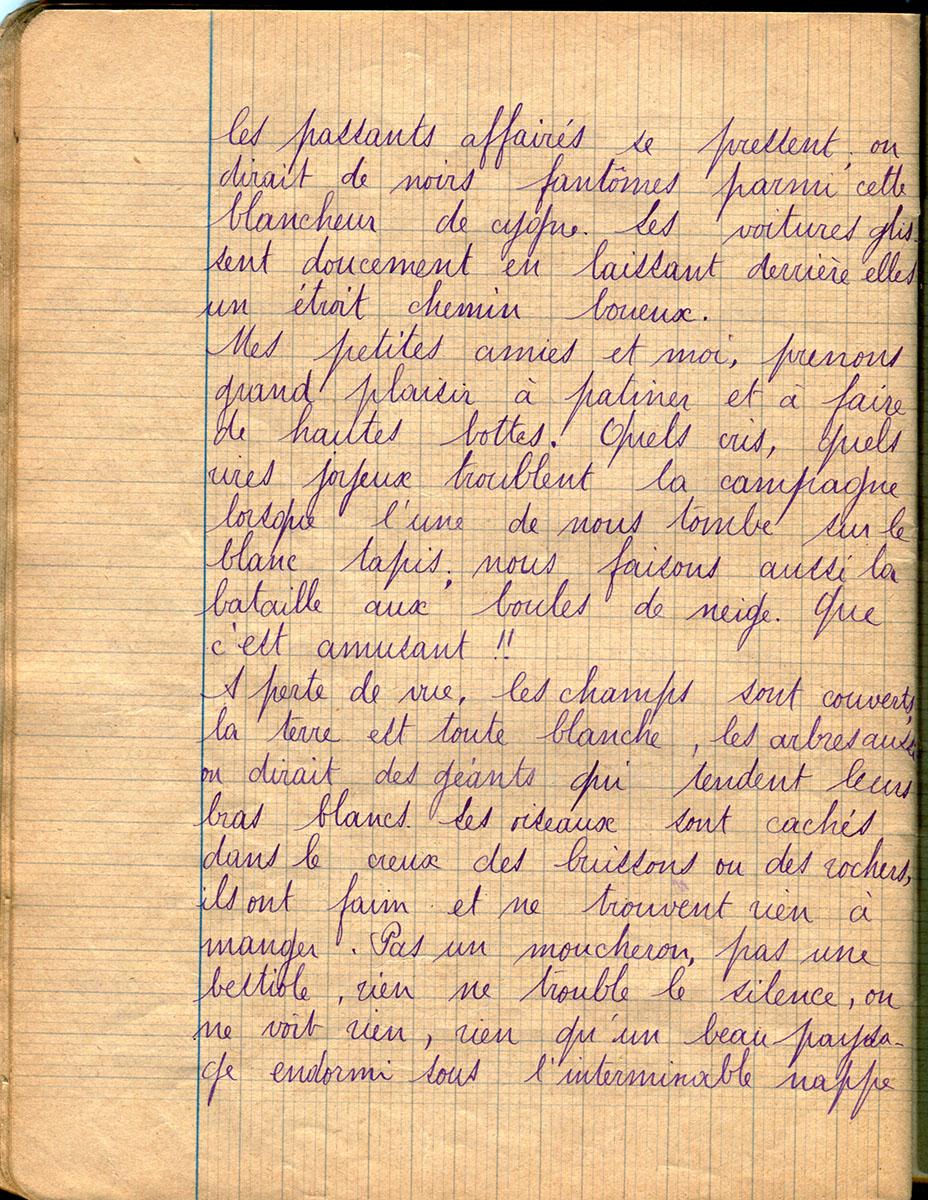 les passants affairés se pressent, on
dirait de noirs fantômes parmi cette
blancheur de cygne. Les voitures glis-
sent doucement en laissant derrière elles
un étroit chemin boueux.
Mes petites amies et moi, prenons
grand plaisir à patiner et à faire
de hautes bottes. Quels cris, quels
rires joyeux troublent la campagne
lorsque l'une de nous tombe sur le
blanc tapis, nous faisons aussi la
bataille aux boules de neige. Que
c'est amusant !!
A perte de vue, les champs sont couverts,
la terre est toute blanche, les arbres aussi
on dirait des géants qui tendent leurs
bras blancs. Les oiseaux sont cachés
dans le creux des buissons ou des rochers,
ils ont faim et ne trouvent rien à
manger. Pas un moucheron, pas une
bestiole, rien ne trouble le silence, on
ne voit rien, rien qu'un beau paysa-
ge endormi sous l'interminable nappe